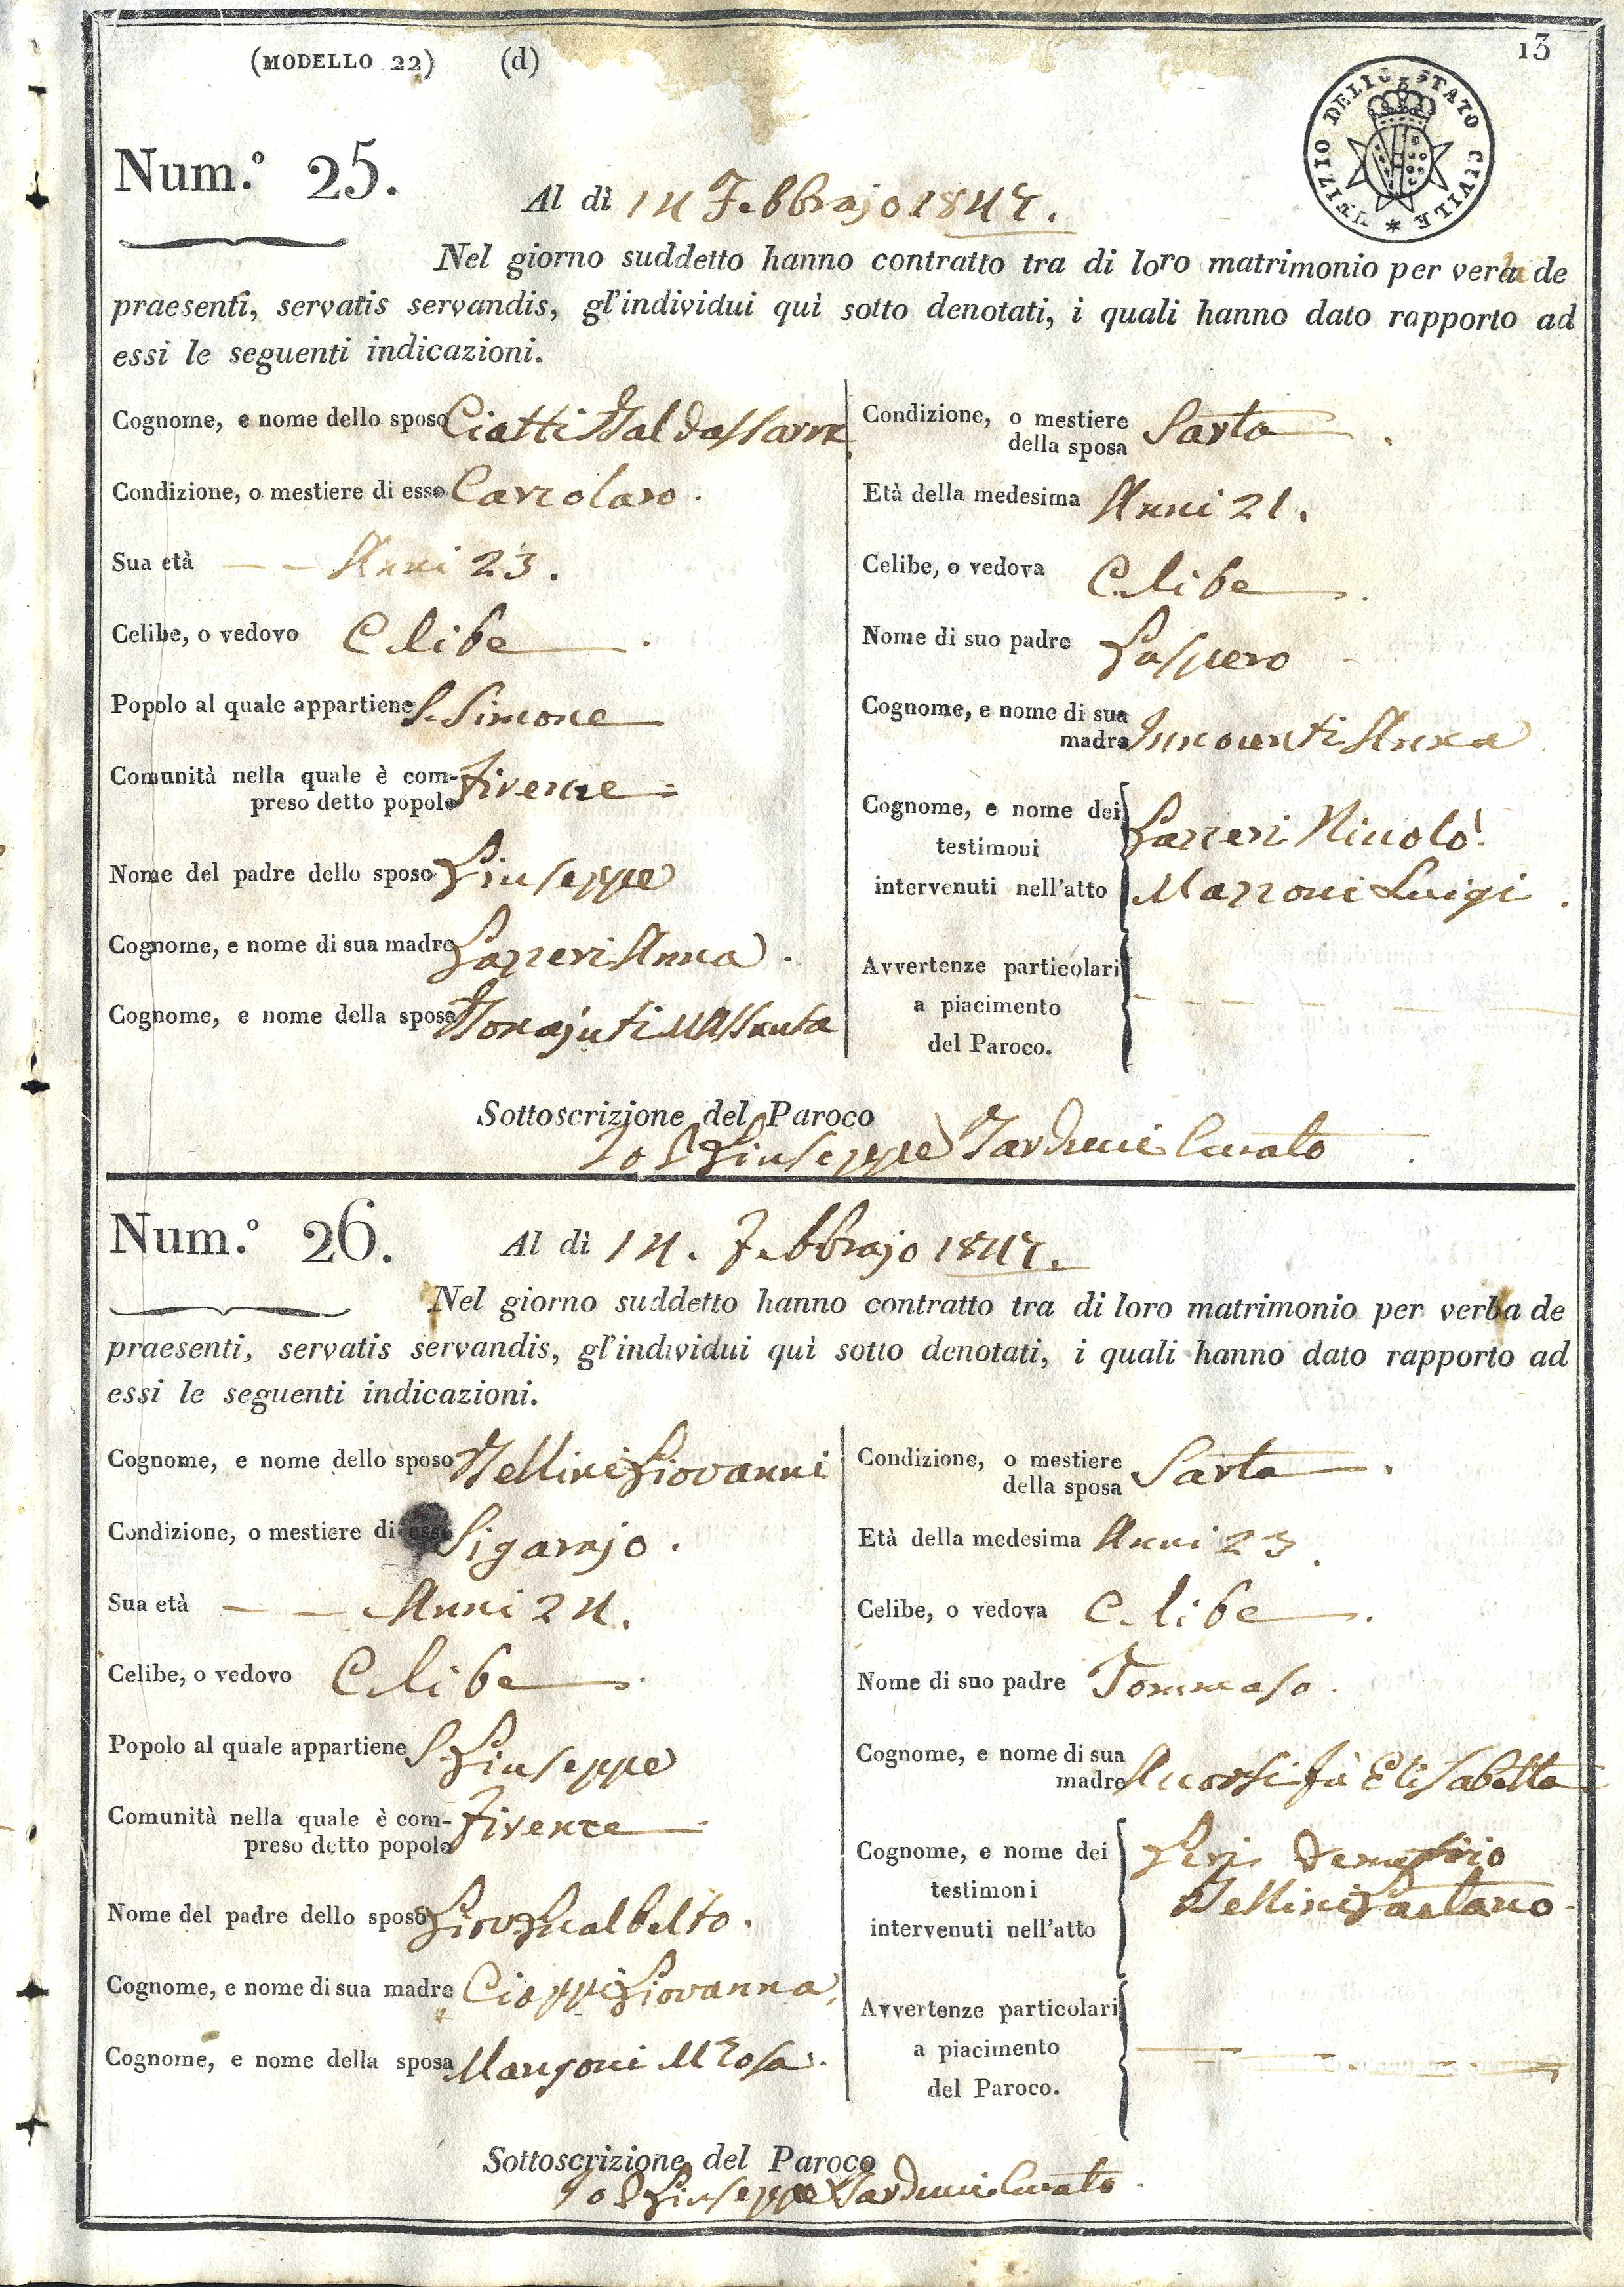 (MODELLO 22) (d) 13
UFIZIO DELLO STATO CIVILE *
Num.º 25. Al dì 14 Febbrajo 1847.
Nel giorno suddetto hanno contratto tra di loro matrimonio per verba de
praesenti, servatis servandis, gl'individui quì sotto denotati, i quali hanno dato rapporto ad
essi le seguenti indicazioni.
Cognome, e nome dello sposo Ciatti Baldassarre
Condizione, o mestiere di esso Calzolaro.
Sua età — — Anni 23.
Celibe, o vedovo Celibe
Popolo al quale appartiene S. Simone
Comunità nella quale è com-
preso detto popolo Firenze
Nome del padre dello sposo Giuseppe
Cognome, e nome di sua madre Lazzeri Anna.
Cognome, e nome della sposa Bonajuti M Assunta
Condizione, o mestiere
della sposa Sarta
Età della medesima Anni 21.
Celibe, o vedova Celibe
Nome di suo padre Gaspero
Cognome, e nome di sua
madre Innocenti Anna
Cognome, e nome dei
testimoni
intervenuti nell'atto
Lazzeri Niccolò.
Mazzoni Luigi.
Avvertenze particolari
a piacimento
del Paroco.
Sottoscrizione del Paroco
Io P Giuseppe Curato
Num.º 26. Al dì 14. Febbrajo 1847.
Nel giorno suddetto hanno contratto tra di loro matrimonio per verba de
praesenti, servatis servandis, gl'individui quì sotto denotati, i quali hanno dato rapporto ad
essi le seguenti indicazioni.
Cognome, e nome dello sposo Bellini Giovanni
Condizione, o mestiere di esso Sigarajo.
Sua età — — Anni 24.
Celibe, o vedovo Celibe
Popolo al quale appartiene S. Giuseppe
Comunità nella quale è com-
preso detto popolo Firenze
Nome del padre dello sposo Giov Gualberto.
Cognome, e nome di sua madre Cioppi Giovanna,
Cognome, e nome della sposa Mangoni M Rosa.
Condizione, o mestiere
della sposa Sarta
Età della medesima Anni 23.
Celibe, o vedova Celibe
Nome di suo padre Tommaso.
Cognome, e nome di sua
madre Accorsi fù Elisabetta
Cognome, e nome dei
testimoni
intervenuti nell'atto
Geri
Bellini Gaetano.
Avvertenze particolari
a piacimento
del Paroco.
Sottoscrizione del Paroco
Io P Giuseppe Curato